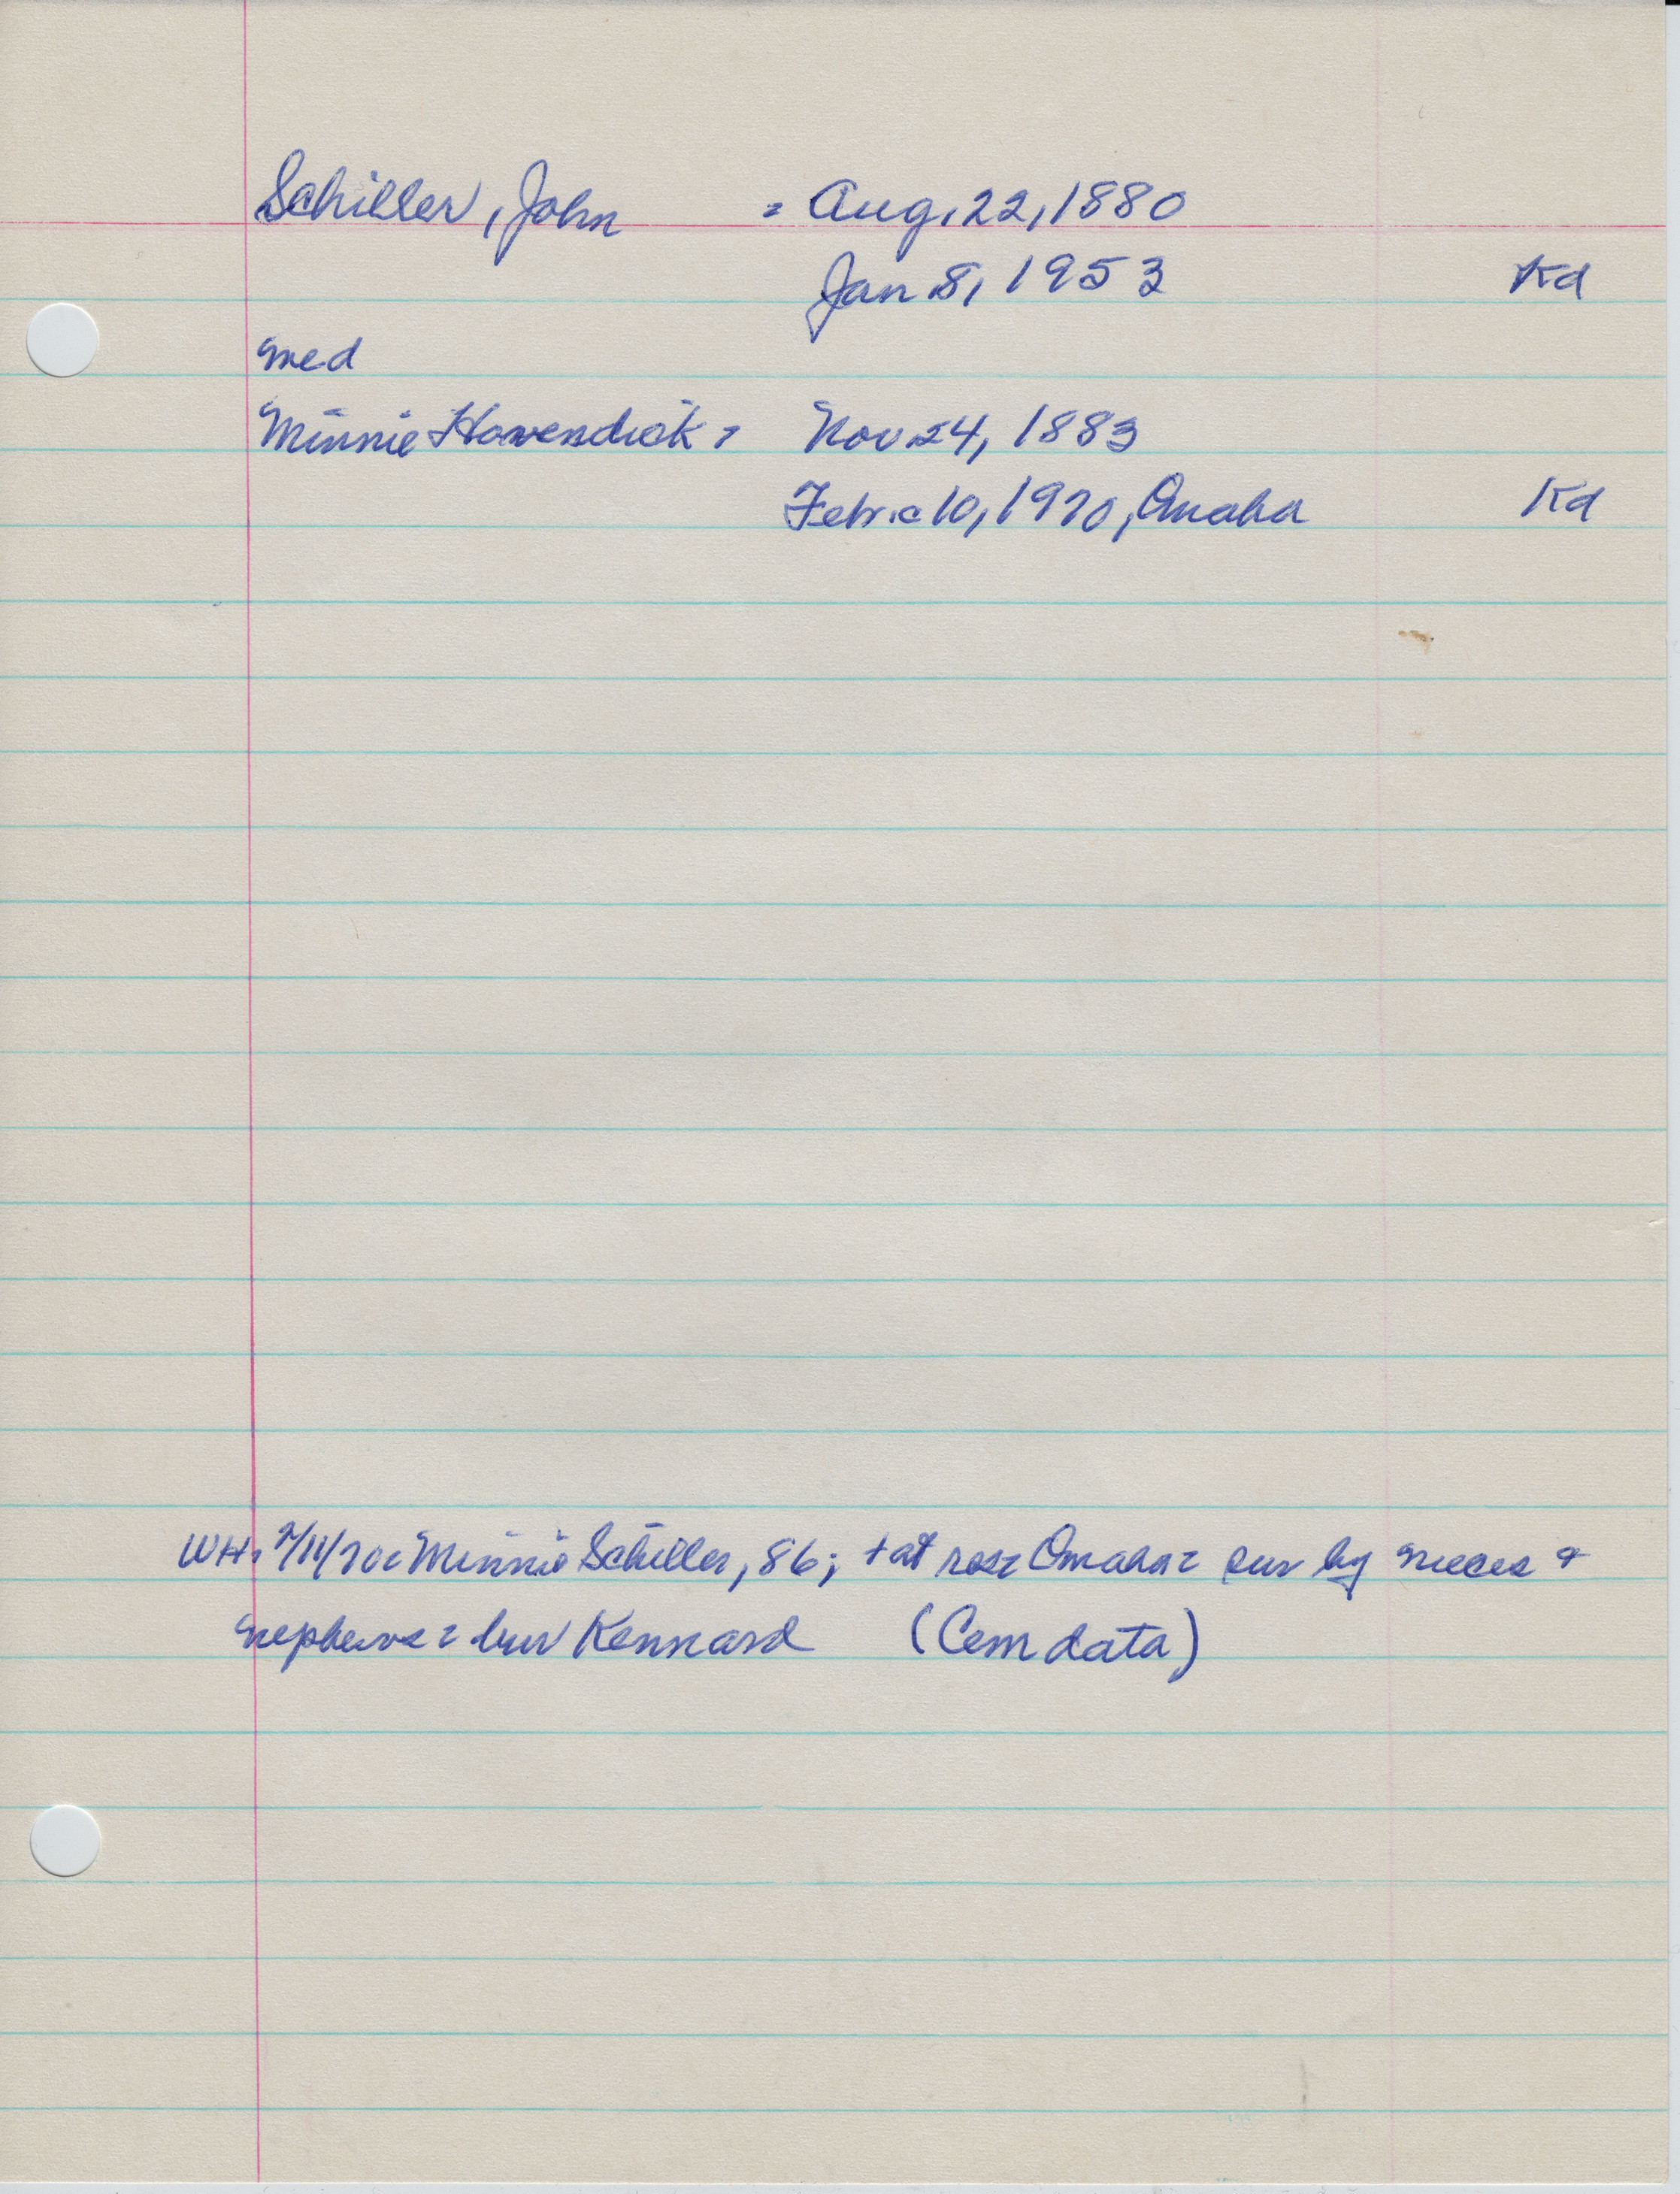 Schiller, John = Aug. 22, 1880
Jan 8, 1953 Kd
med
Minnie Hovendick = Nov 24, 1883
Febr. c 10, 1970, Omaha Kd
WH. 2/11/70: Minnie Schiller, 86; + at res = Omaha = sur by nieces &
nephews = bur Kennard (Cem data)